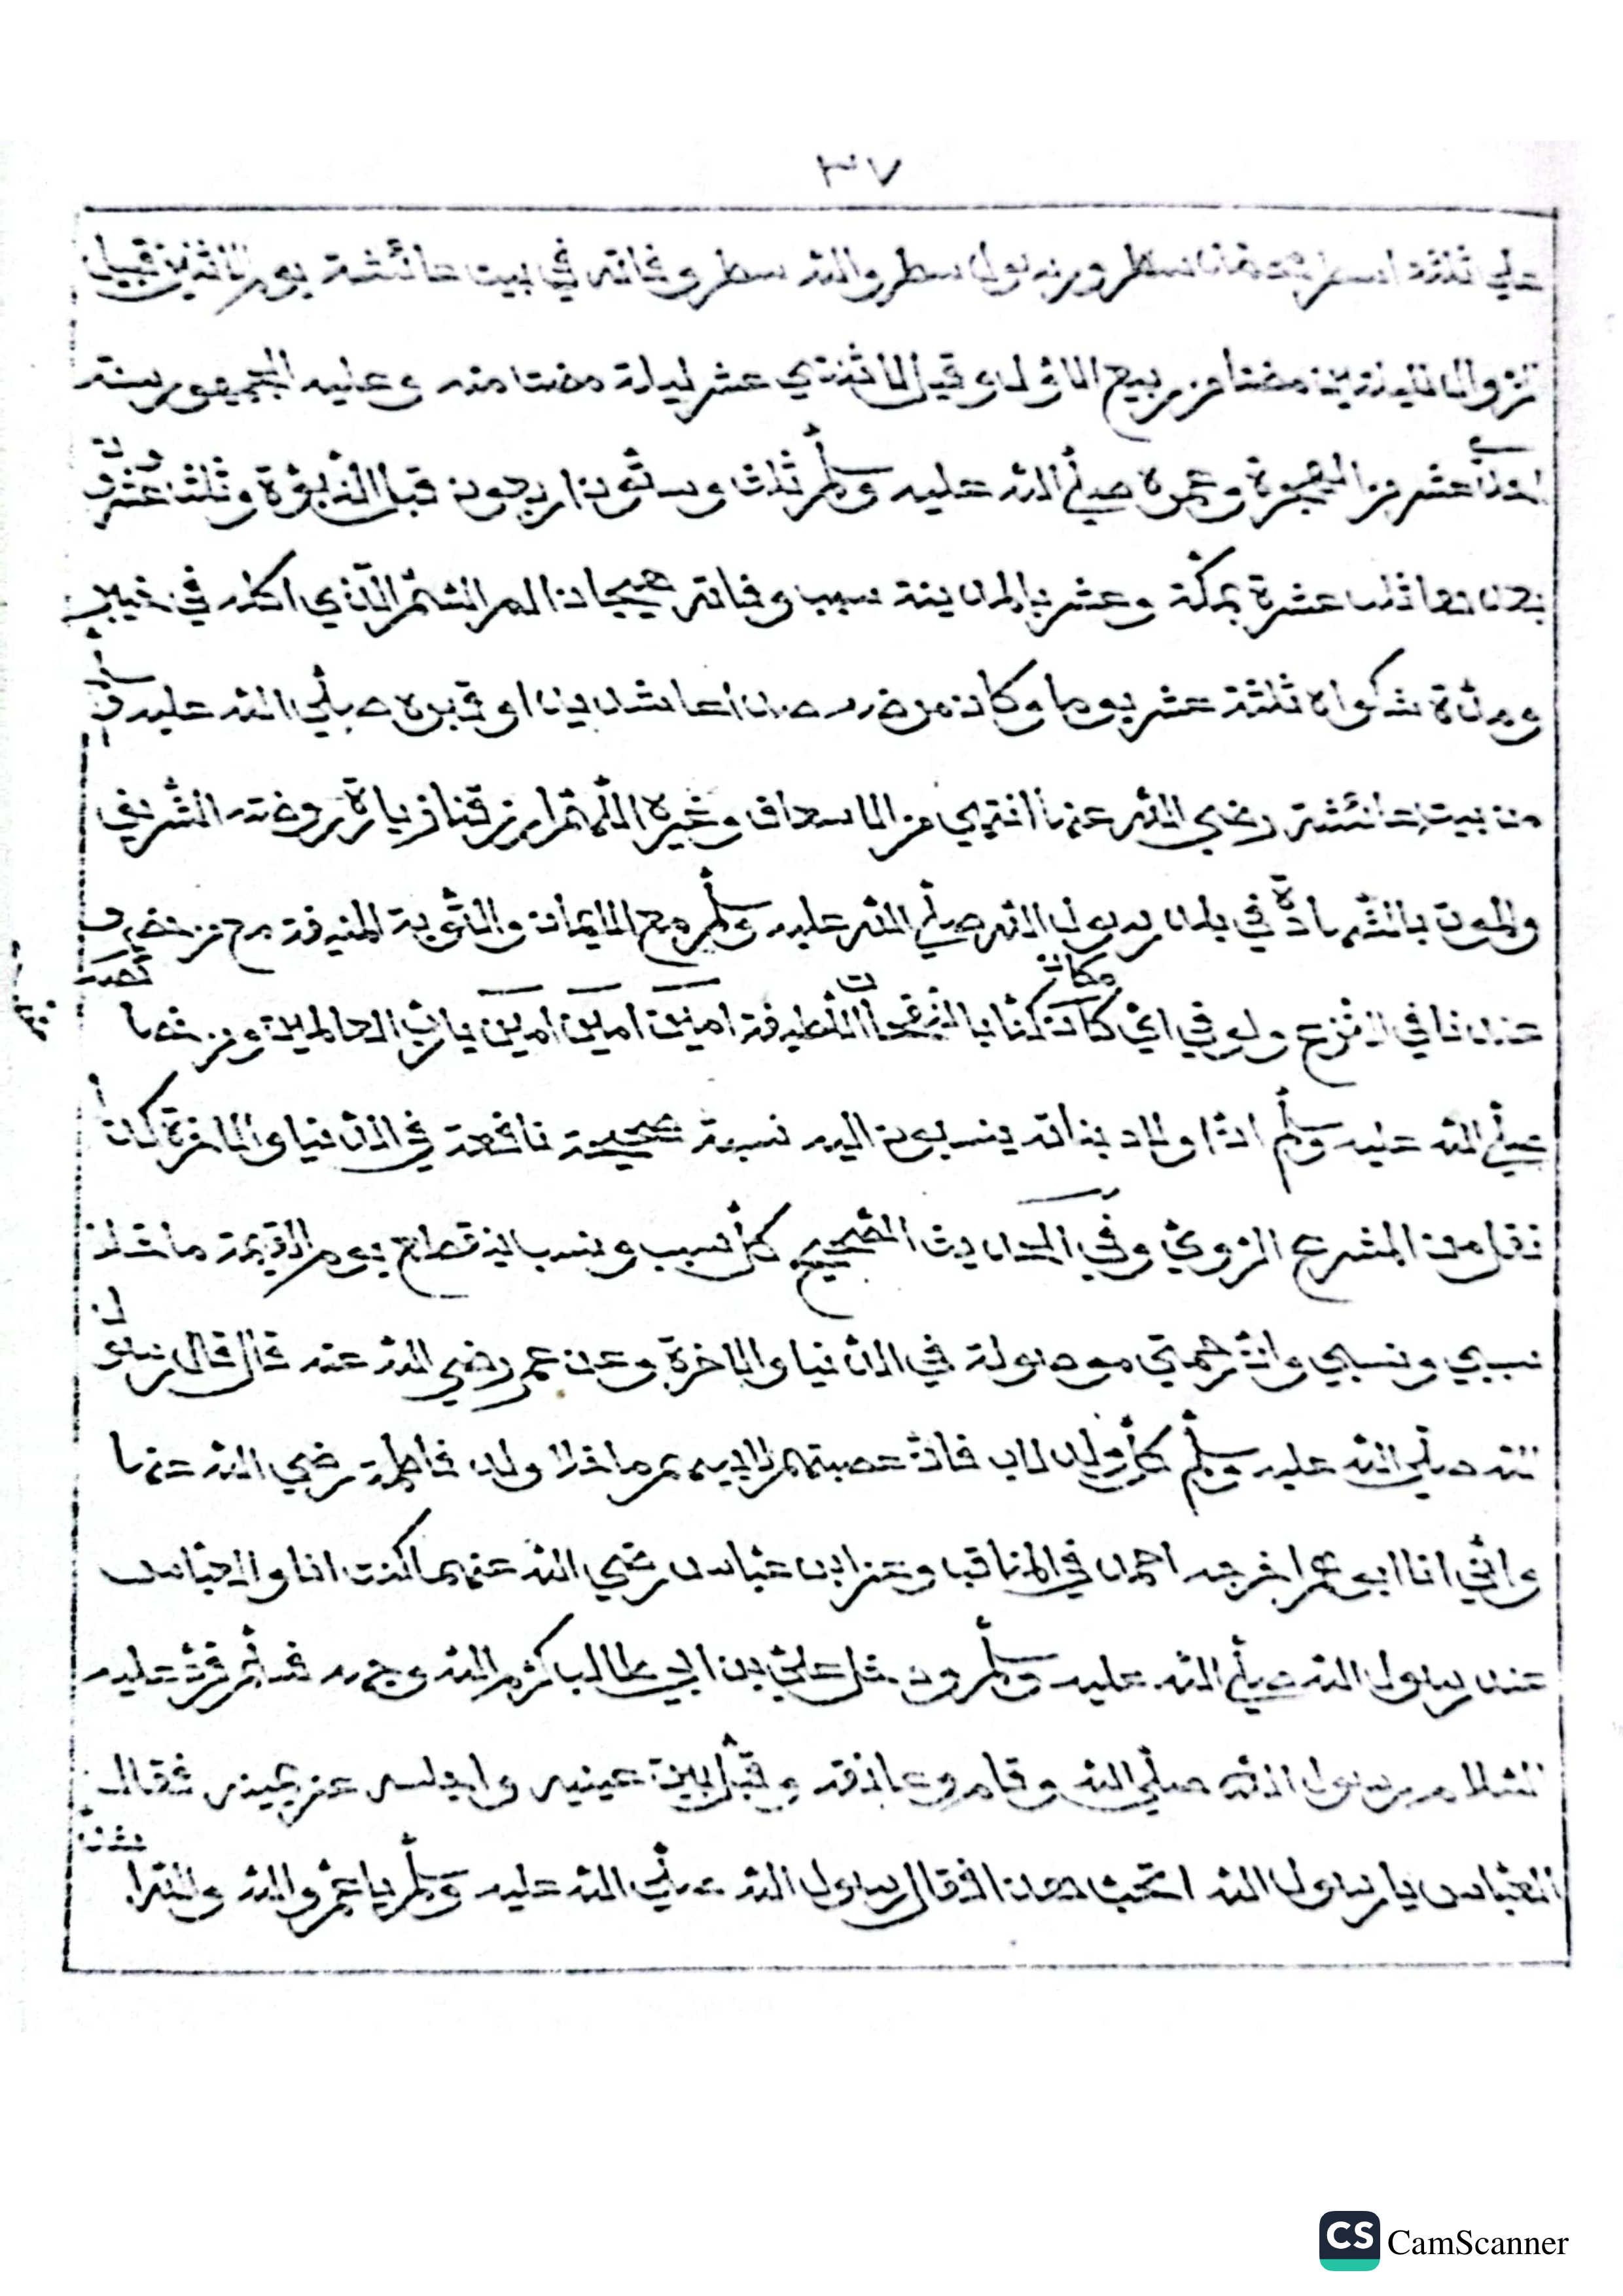 ٣٧
علي ثلثة اسطر محمد سطر ورسول سطر والله سطر وفاته في بيت عائشة يوم الاثنين قبيل
الزوال لليلتين مضتا من ربيع الاول وقيل لاثنتي عشر ليلة مضتا منه وعليه الجمهور سنة
احدي عشر من الهجرة وعمره صلي الله عليه وسلم ثلث وستون اربعون قبل النبوة وثلث عشرون
بعدها ثلث عشرة بمكة وعشر بالمدينة سبب وفاته هيجان الم السم الذي اكله في خيبر
ومدة شكواه ثلثة عشر يوما وكان مرضه صداعا شديدا وقبره صلي الله عليه و
من بيت عائشة رضي الله عنها انتهي من الاسعاف وغيره اللهم ارزقنا زيارة روضته الشريفة
والموت بالشهادة في بلد رسول الله صلي الله عليه وسلم مع الايمان والتوبة المنيفة مع من حضر
عندنا في النزع ولو في اي مكان كنا بال اللطيفة امين امين امين يا رب العالمين ومن خصا
صلي الله عليه وسلم ان اولاد بناته ينسبون اليه نسبة صحيحة نافعة في الدنيا والاخرة كما
نقل من المشرع الروي وفي الحديث الصحيح كل سبب ونسب ينقطع يوم القيمة ما خلا
سببي ونسبي وان رحمتي موصولة في الدنيا والاخرة وعن عمر رضي الله عنه قال قال رسول
الله صلي الله عليه وسلم كل ولد اب فان عصبتهم لابيهم ما خلا ولد فاطمة رضي الله عنها
واني انا ابوهم اخرجه احمد في المناقب وعن ابن عباس رضي الله عنهما كنت انا والعباس
عند رسول الله صلي الله عليه وسلم دخل علي بن ابي طالب كرم الله وجهه فسلم فرد عليه
السلام رسول الله صلي الله وقام وعانقه وقبل بين عينيه واجلسه عن يمينه فقال
العباس يا رسول الله اتحب هذا فقال رسول الله صلي الله عليه وسلم يا عم والله والله
CS CamScanner